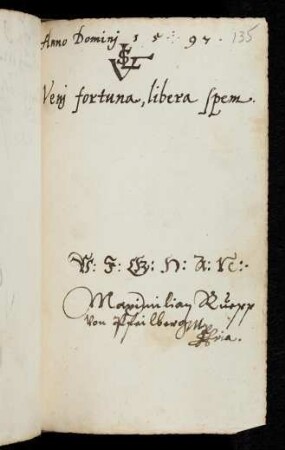 Anno Dominj 1597. 135
VSL
Venj fortuna, libera spem.
V: F: G: H: A: V:
Maximilian Ruepp
von Pfeilberg Mp
pria.